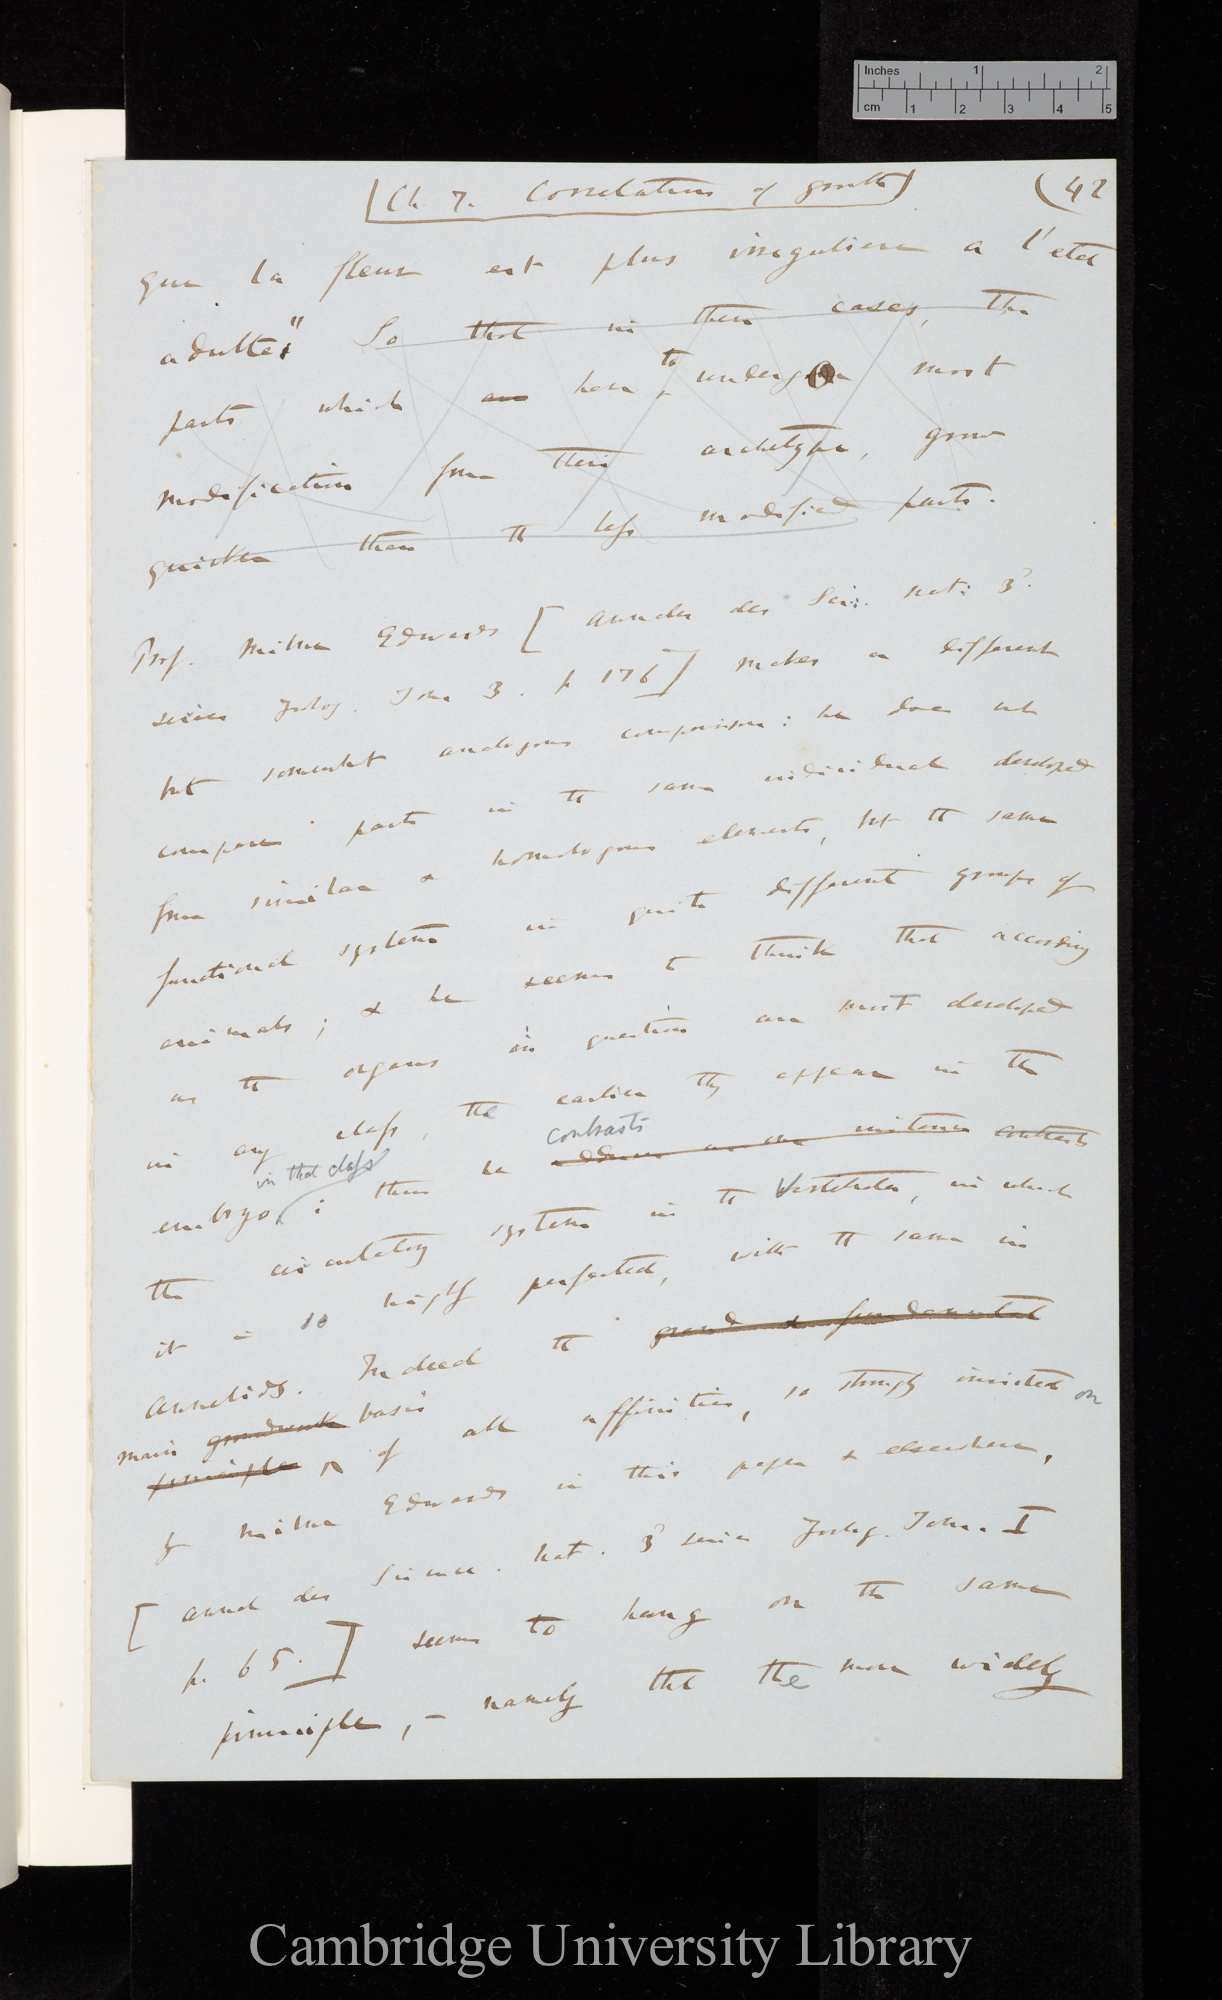 Inches 1 2
cm 1 2 3 4 5
[Ch. 7. Correlation of growth] (42
que la fleur est plus irreguliere a l'etat
adulte." So that in these cases, the
to
parts which are have undergo most
modification from their archetype, grow
quicker than the less modified parts.
Prof. Milne Edwards [Annales des Sci: Nat: 3ͩ.
series Zoolog. Tom 3. p 176] makes a different
but somewhat analogous comparison: he does not
compare parts in the same individual developed
from similar & homologous elements, but the same
functional systems in quite different groups of
animals; & he seems to think that according
as the organs in question are most developed
in any class, the earlier they appear in the
contrasts
in that class
embryo; thus he adduces as an instance contrasts
the circulatory system in the Vertebrata, in which
it is so highly perfected, with the same in
Annelids. Indeed the grand & fundamental
main groundwork basis
principle of all affinities, so strongly insisted on
by Milne Edwards in this paper & elsewhere,
[Annal des Science. Nat. 3ͩ series Zoolog. Tom. I
p. 65.] seems to hang on the same
principle, – namely that the more widely
Cambridge University Library